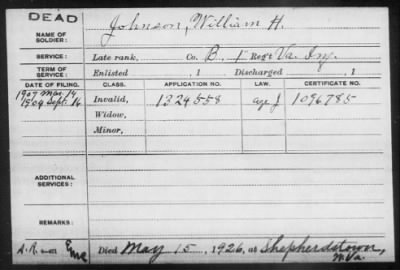 DEAD
NAME OF SOLDIER: Johnson, William H.
SERVICE: Late rank, Co. B, 1 Reg't Va. Inf.
TERM OF SERVICE: Enlisted , 1 Discharged , 1
DATE OF FILING. CLASS. APPLICATION NO. LAW. CERTIFICATE NO.
1907 Mar. 14
1909 Sept. 16 Invalid, 1324558 1096785
Widow,
Minor,
ADDITIONAL SERVICES:
REMARKS:
Died May 15, 1926, at Shepherdstown,
W. Va.